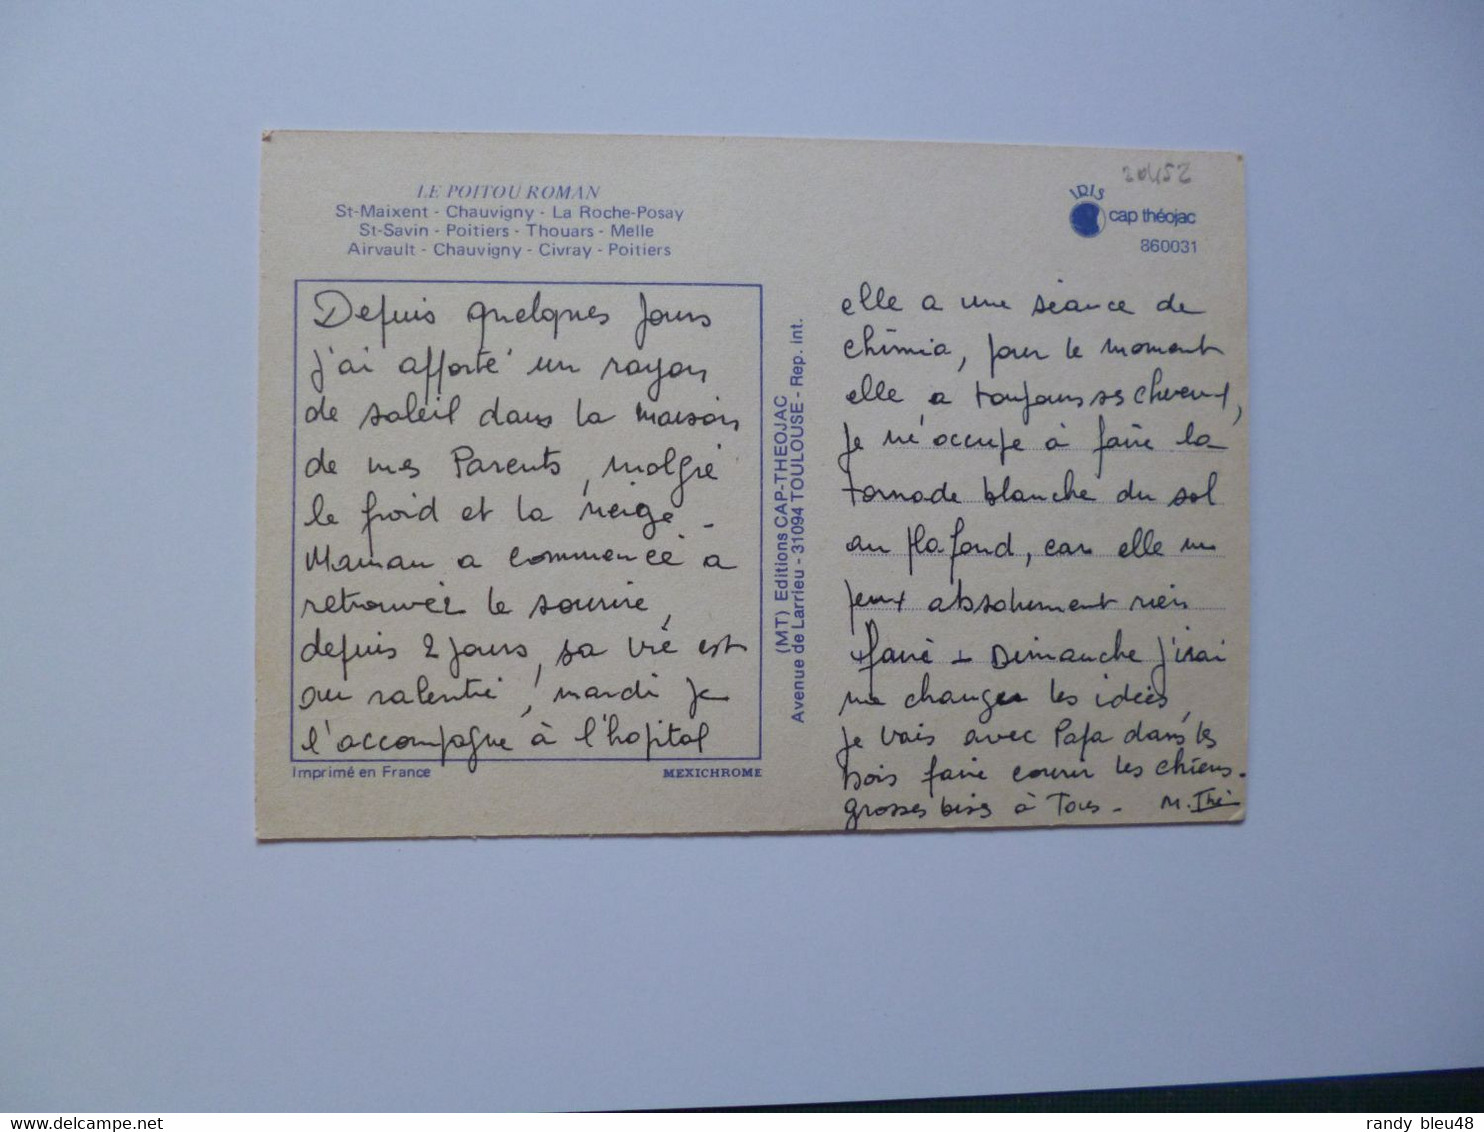 LE POITOU ROMAN
St-Maixent - Chauvigny - La Roche-Posay
St-Savin - Poitiers - Thouars - Melle
Airvault - Chauvigny - Civray - Poitiers
IRIS
cap théojac
860031
Depuis quelques jours
j'ai apporté un rayon
de soleil dans la maison
de mes Parents, malgré
le froid et la neige -
Maman a commencé à
retrouver le sourire,
depuis 2 jours, sa vie est
au ralenti, mardi je
l'accompagne à l'hopital
Imprimé en France
MEXICHROME
(MT) Editions CAP-THEOJAC
Avenue de Larrieu - 31094 TOULOUSE - Rep. int.
elle a une séance de
chimio, pour le moment
elle a toujours ses cheveux,
je m'occupe à faire la
tornade blanche du sol
au plafond, car elle ne
peux absolument rien
faire - Dimanche j'irai
me changer les idées,
je vais avec Papa dans les
bois faire courir les chiens.
grosses bises à Tous - M. Thé
randy bleu48